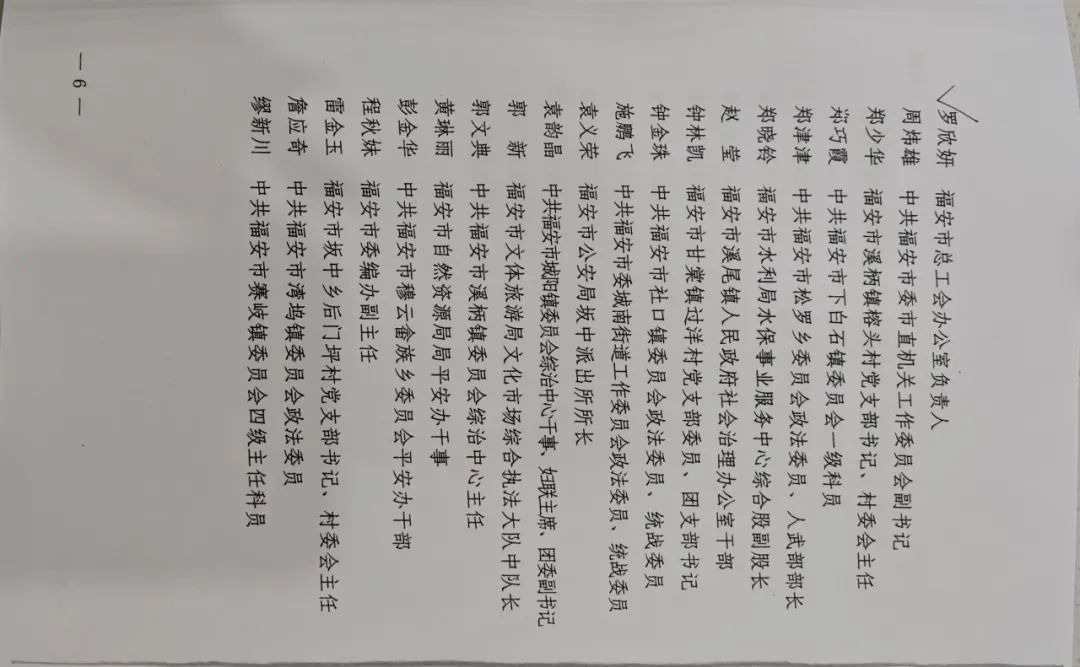 罗欣妍 福安市总工会办公室负责人
周炜雄 中共福安市委市直机关工作委员会副书记
郑少华 福安市溪柄镇榕头村党支部书记、村委会主任
郑巧霞 中共福安市下白石镇委员会一级科员
郑津津 中共福安市松罗乡委员会政法委员、人武部部长
郑晓铃 福安市水利局水保事业服务中心综合股副股长
赵 莹 福安市溪尾镇人民政府社会治理办公室干部
钟林凯 福安市甘棠镇过洋村党支部委员、团支部书记
钟金珠 中共福安市社口镇委员会政法委员、统战委员
施鹏飞 中共福安市委城南街道工作委员会政法委员、统战委员
袁义荣 福安市公安局坂中派出所所长
袁韵晶 中共福安市城阳镇委员会综治中心干事、妇联主席、团委副书记
郭 新 福安市文体旅游局文化市场综合执法大队中队长
郭文典 中共福安市溪柄镇委员会综治中心主任
黄琳丽 福安市自然资源局局平安办干事
彭金华 中共福安市穆云畲族乡委员会平安办干部
程秋妹 福安市委编办副主任
雷金玉 福安市坂中乡后门坪村党支部书记、村委会主任
詹应奇 中共福安市湾坞镇委员会政法委员
缪新川 中共福安市赛岐镇委员会四级主任科员
— 6 —